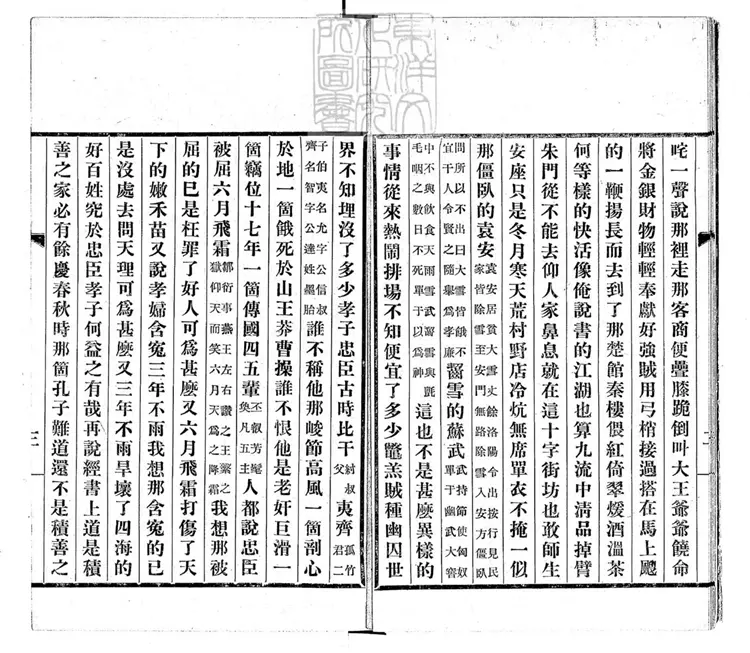 咤一聲說那裡走那客商便疊膝跪倒叫大王爺爺饒命
將金銀財物輕輕奉獻好強賊用弓梢接過搭在馬上颼
的一鞭揚長而去到了那楚館秦樓偎紅倚翠煖酒溫茶
何等樣的快活像俺說書的江湖也算九流中清品掉臂
朱門從不能去仰人家鼻息就在這十字街坊也敢師生
安座只是冬月寒天荒村野店冷炕無席單衣不掩一似
那僵臥的袁安袁安居貧大雪丈餘洛陽令出按行見民家皆除雪至安門無路除雪入安方僵臥
問所以不出曰大雪皆餓不宜干人令賢之隨舉爲孝廉嚙雪的蘇武武持節使匈奴單于幽武大窖
中不與飲食天雨雪武嚙雪與氈毛咽之數日不死單于以爲神這也不是甚麼異樣的
事情從來熱鬧排場不知便宜了多少鼈羔賊種幽囚世
界不知埋沒了多少孝子忠臣古時比干紂叔父夷齊孤竹君二
子伯夷名允字公信叔齊名智字公達姓墨胎誰不稱他那峻節高風一箇剖心
於地一箇餓死於山王莽曹操誰不恨他是老奸巨滑一
箇竊位十七年一箇傳國四五輩丕叡芳髦奐凡五主人都說忠臣
被屈六月飛霜鄒衍事燕王左右譖之王繫之獄仰天而哭六月天爲之降霜我想那被
屈的巳是枉罪了好人可爲甚麼又六月飛霜打傷了天
下的嫩禾苗又說孝婦含冤三年不雨我想那含冤的已
是沒處去問天理可爲甚麼又三年不雨旱壞了四海的
好百姓究於忠臣孝子何益之有哉再說經書上道是積
善之家必有餘慶春秋時那箇孔子難道還不是積善之
三